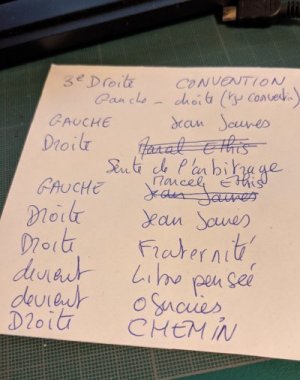 3e Droite CONVENTION
Gauche - droite (rgr convention)
GAUCHE Jean Jaures
Droite Maral Ethis
Sente de l'arbitrage
GAUCHE Marcel Ethis
Jean Jaures
Droite Jean Jaures
Droite Fraternité
devient Libre pensée
devient Oseraies
Droite CHEMIN